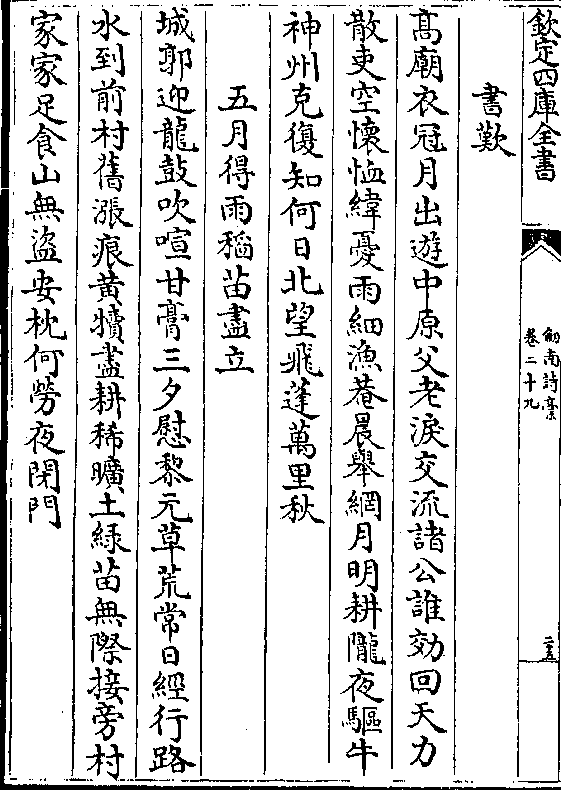 欽定四庫全書
劒南詩藁
卷二十九
二五
書歎
高廟衣冠月出遊中原父老淚交流諸公誰効回天力
散吏空懷恤緯憂雨細漁菴晨舉網月明耕隴夜驅牛
神州克復知何日北望飛蓬萬里秋
五月得雨稻苗盡立
城郭迎龍鼓吹喧甘膏三夕慰黎元草荒常日經行路
水到前村舊漲痕黃犢盡耕稀曠土緑苗無際接旁村
家家足食山無盜安枕何勞夜閉門